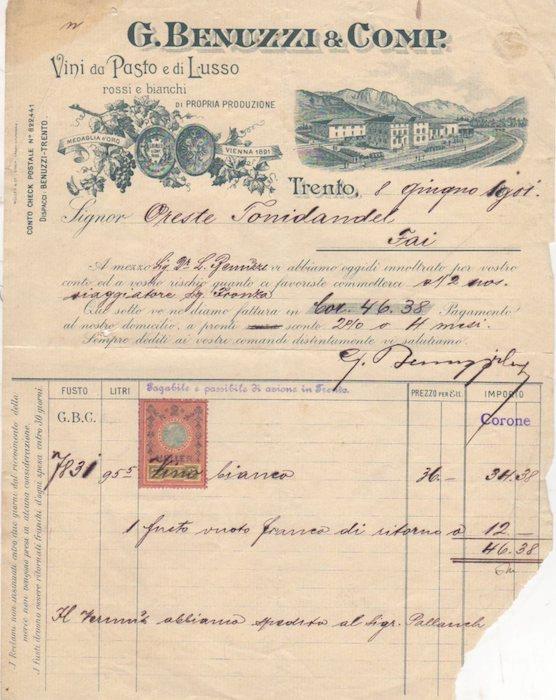 G. BENUZZI & COMP.
Vini da Pasto e di Lusso
rossi e bianchi
DI PROPRIA PRODUZIONE
MEDAGLIA d'ORO
VIENNA 1891
CONTO CHECK POSTALE No 822441
DISPACCI: BENUZZI-TRENTO.
Trento, 8 giugno 1901.
Signor Oreste Tonidandel
Fai
A mezzo Sig Dr L. Benuzzi vi abbiamo oggidì innoltrato per vostro
conto ed a vostro rischio quanto ci favoriste commetterci a/z nos.
viaggiatore Sg.
Qui sotto ve ne diamo fattura in Cor. 46.38 Pagamento
al nostro domicilio, a pronti sconto 2% o 4 mesi.
Sempre dediti ai vostri comandi distintamente vi salutiamo.
G. Benuzzi
FUSTO LITRI Pagabile e passibile di azione in Trento. PREZZO PER Ett. IMPORTO
G.B.C. Corone
2
HELLER
7831 95 5 Vino bianco 36.- 34.38
1 fusto vuoto franco di ritorno a 12 -
46.38
Il Vermut abbiamo spedito al Sigr.
I Reclami non insinuati entro due giorni dal ricevimento della
merce non vengono presi in alcuna considerazione.
I fusti devono essere ritornati franchi d'ogni spesa entro 30 giorni.